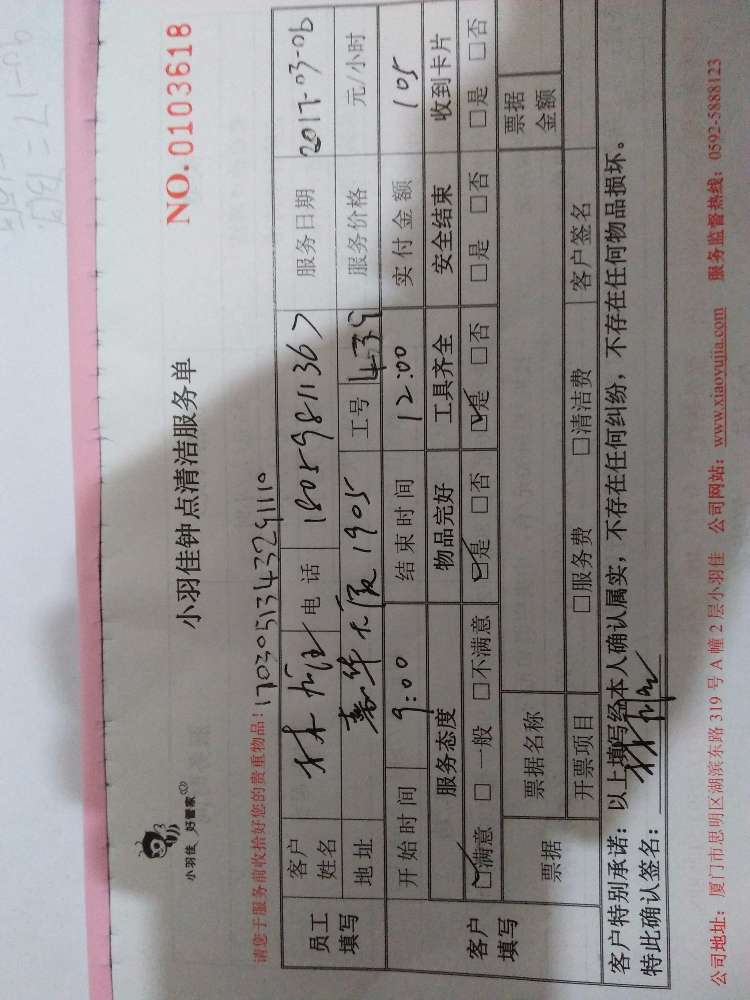 小羽佳 好管家
小羽佳钟点清洁服务单
NO.0103618
请您于服务前收拾好您的贵重物品!
17030513432911110
员工填写 客户姓名 林 电话 18059811367 服务日期 2017-03-06
地址 嘉华大厦1905 工号 4339 服务价格 元/小时
客户填写 开始时间 9:00 结束时间 12:00 实付金额 105
服务态度 物品完好 工具齐全 安全结束 收到卡片
☑满意 □一般 □不满意 ☑是 □否 ☑是 □否 □是 □否 □是 □否
票据 票据名称 票据金额
开票项目 □服务费 □清洁费 客户签名
客户特别承诺：以上填写经本人确认属实，不存在任何纠纷，不存在任何物品损坏。
特此确认签名：
公司地址：厦门市思明区湖滨东路319号A幢2层小羽佳 公司网站：www.xiaoyujia.com 服务监督热线：0592-5888123